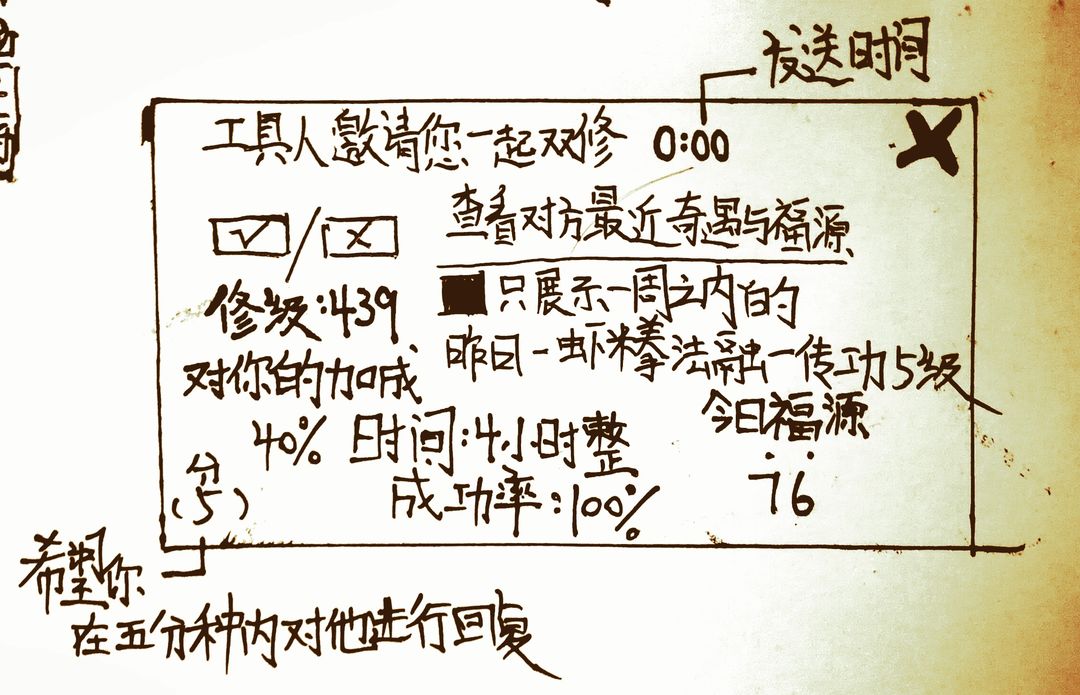 发送时间
工具人邀请您一起双修 0:00 X
√/X 查看对方最近奇遇与福源
修级:439 ■只展示一周之内的
对你的加成 昨日-虾米拳法融一传功5级
40% 时间:4小时整 今日福源
(5分) 成功率:100% 76
希望你
在五分种内对他进行回复